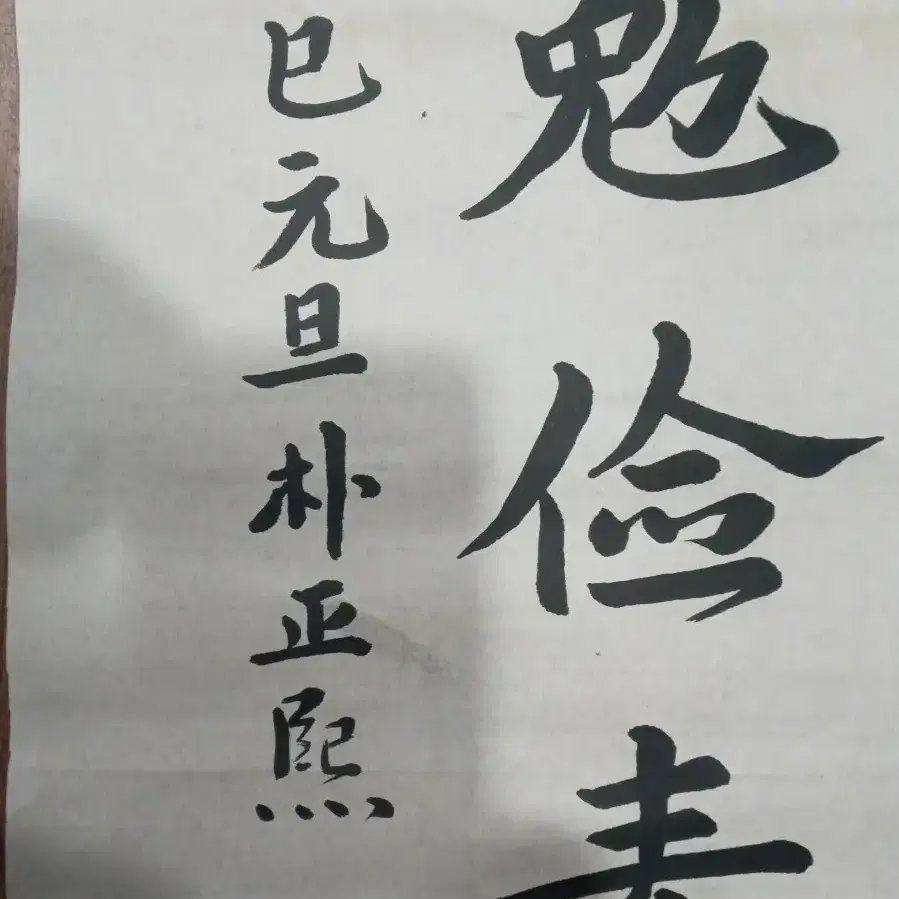 勉儉素
巳元旦朴正熙